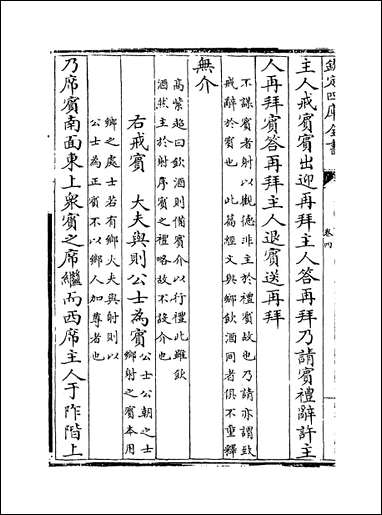 欽定四庫全書
卷四
主人戒賓賓出迎再拜主人答再拜乃請賓禮辭許主
人再拜賓答再拜主人退賓送再拜
不謀賓者射以觀德非主於禮賓故也乃請亦謂致
戒辭於賓也 此篇經文與鄉飲酒同者俱不重釋
無介
髙紫超曰飲酒則備賓介以行禮此雖飲
酒然主於射序賓之禮略故不設介也
右戒賓 大夫與則公士為賓 公士公朝之士
鄉射之賓本用
鄉之處士若有鄉大夫與射則以
公士為正賓不以鄉人加尊者也
乃席賓南面東上衆賓之席繼而西席主人于阼階上